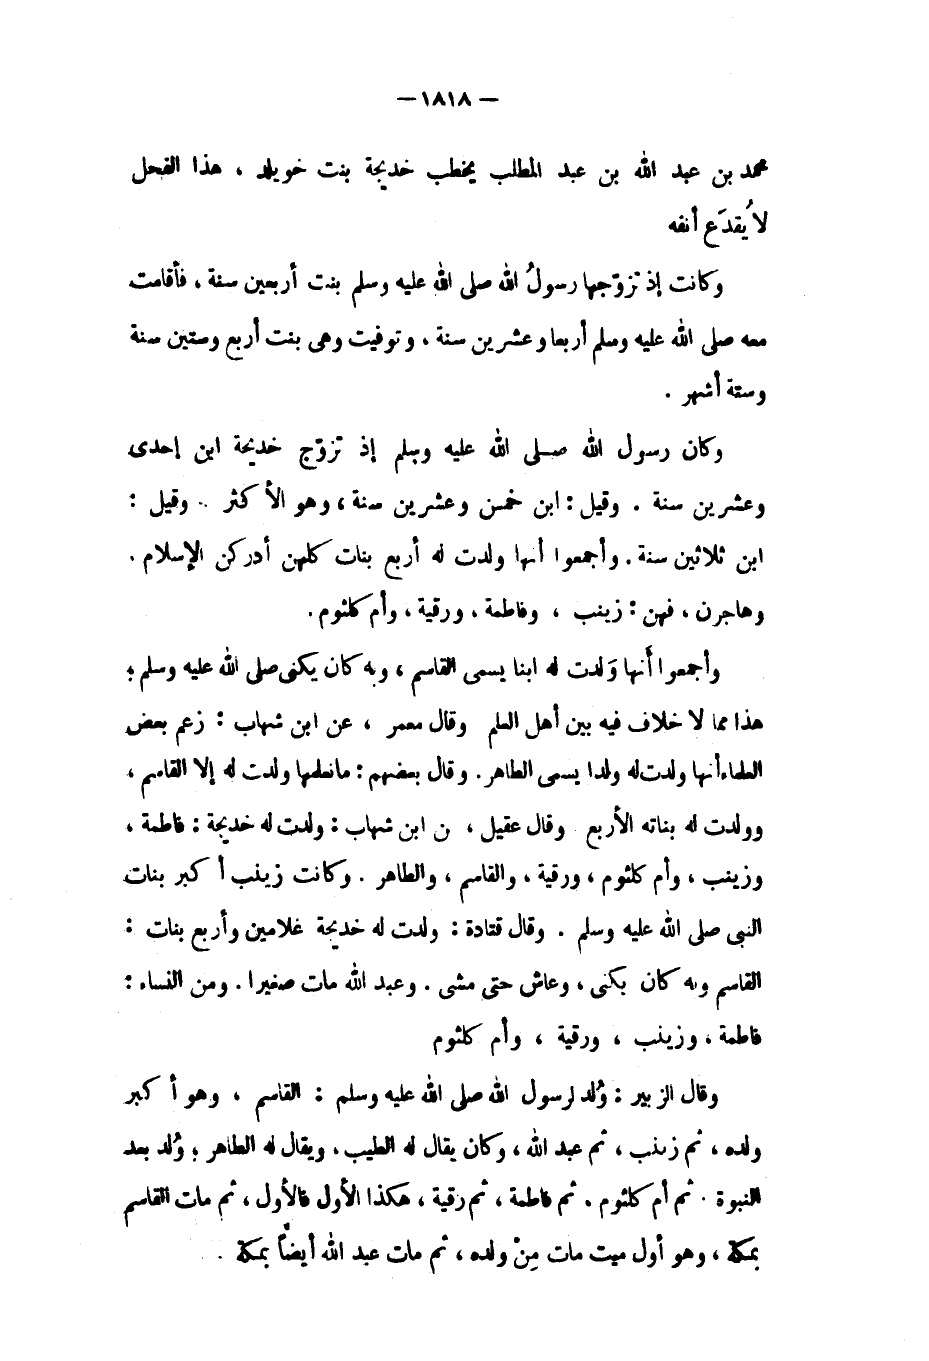 — ١٨١٨ —
محمد بن عبد الله بن عبد المطلب يخطب خديجة بنت خويلد ، هذا الفحل
لا يُقدَع أنفه
وكانت إذ تزوّجها رسولُ الله صلى الله عليه وسلم بنت أربعين سنة ، فأقامت
معه صلى الله عليه وسلم أربعا وعشرين سنة ، وتوفيت وهى بنت أربع وستين سنة
وستة أشهر .
وكان رسول الله صلى الله عليه وسلم إذ تزوّج خديجة ابن إحدى
وعشرين سنة . وقيل : ابن خمس وعشرين سنة ، وهو الأكثر . وقيل :
ابن ثلاثين سنة . وأجمعوا أنها ولدت له أربع بنات كلهن أدركن الإسلام .
وهاجرن ، فهن : زينب ، وفاطمة ، ورقية ، وأم كلثوم .
وأجمعوا أَنها وَلدت له ابنا يسمى القاسم ، وبه كان يكنى صلى الله عليه وسلم ؛
هذا مما لا خلاف فيه بين أهل العلم وقال معمر ، عن ابن شهاب : زعم بعض
العلماء أنها ولدت له ولدا يسمى الطاهر . وقال بعضهم : ما نعلمها ولدت له إلا القاسم ،
وولدت له بناته الأربع وقال عقيل ، ن ابن شهاب : ولدت له خديجة : فاطمة ،
وزينب ، وأم كلثوم ، ورقية ، والقاسم ، والطاهر . وكانت زينب أكبر بنات
النبى صلى الله عليه وسلم . وقال قتادة : ولدت له خديجة غلامين وأربع بنات :
القاسم وبه كان يكنى ، وعاش حتى مشى . وعبد الله مات صغيرا . ومن النساء :
فاطمة ، وزينب ، ورقية ، وأم كلثوم
وقال الزبير : وُلد لرسول الله صلى الله عليه وسلم : القاسم ، وهو أكبر
ولده ، ثم زينب ، ثم عبد الله ، وكان يقال له الطيب ، ويقال له الطاهر ؛ وُلد بعد
النبوة . ثم أم كلثوم . ثم فاطمة ، ثم رقية ، هكذا الأول فالأول ، ثم مات القاسم
بمكة ، وهو أول ميت مات مِنْ ولده ، ثم مات عبد الله أيضاً بمكة .